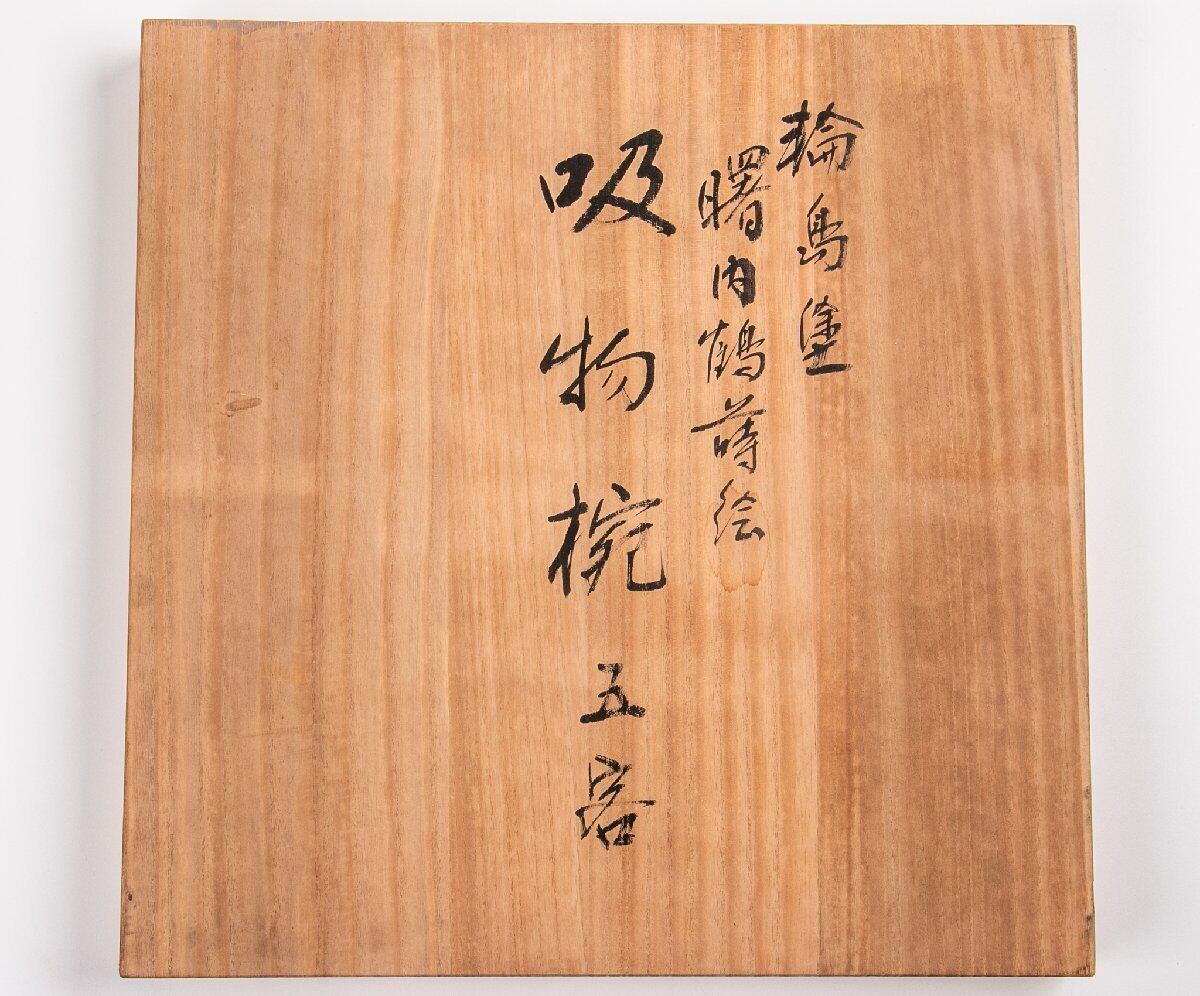 輪島塗
曙内鶴蒔絵
吸物椀 五客